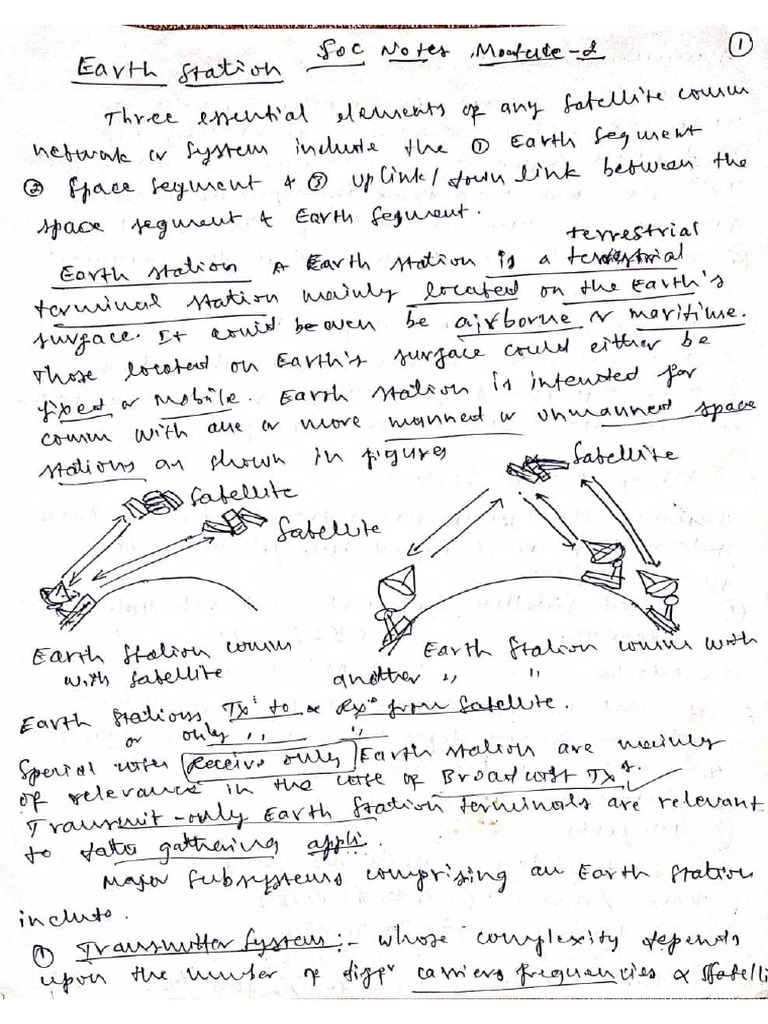 Earth Station   SOC Notes Module-2   ①
Three essential elements of any Satellite comm
network or System include the ① Earth Segment
② Space Segment & ③ uplink/down link between the
space segment & Earth Segment.
terrestrial
Earth station A Earth station is a terrestrial
terminal station mainly located on the Earth's
surface. It could be even be airborne or maritime.
Those located on Earth's surface could either be
fixed or Mobile. Earth Station is intended for
comm with one or more manned or unmanned space
stations as shown in figures
Satellite
Satellite
Satellite
Earth Station comm
with Satellite
Earth Station comm with
another " "
Earth Stations Txs to & Rxs from Satellite.
or only " " "
Special Receive only Earth station are mainly
of relevance in the case of Broadcast Txs.
Transmit-only Earth Station terminals are relevant
to data gathering appli.
Major Subsystems comprising an Earth Station
include.
① Transmitter System:- whose complexity depends
upon the number of diffr carriers frequencies & Satelli